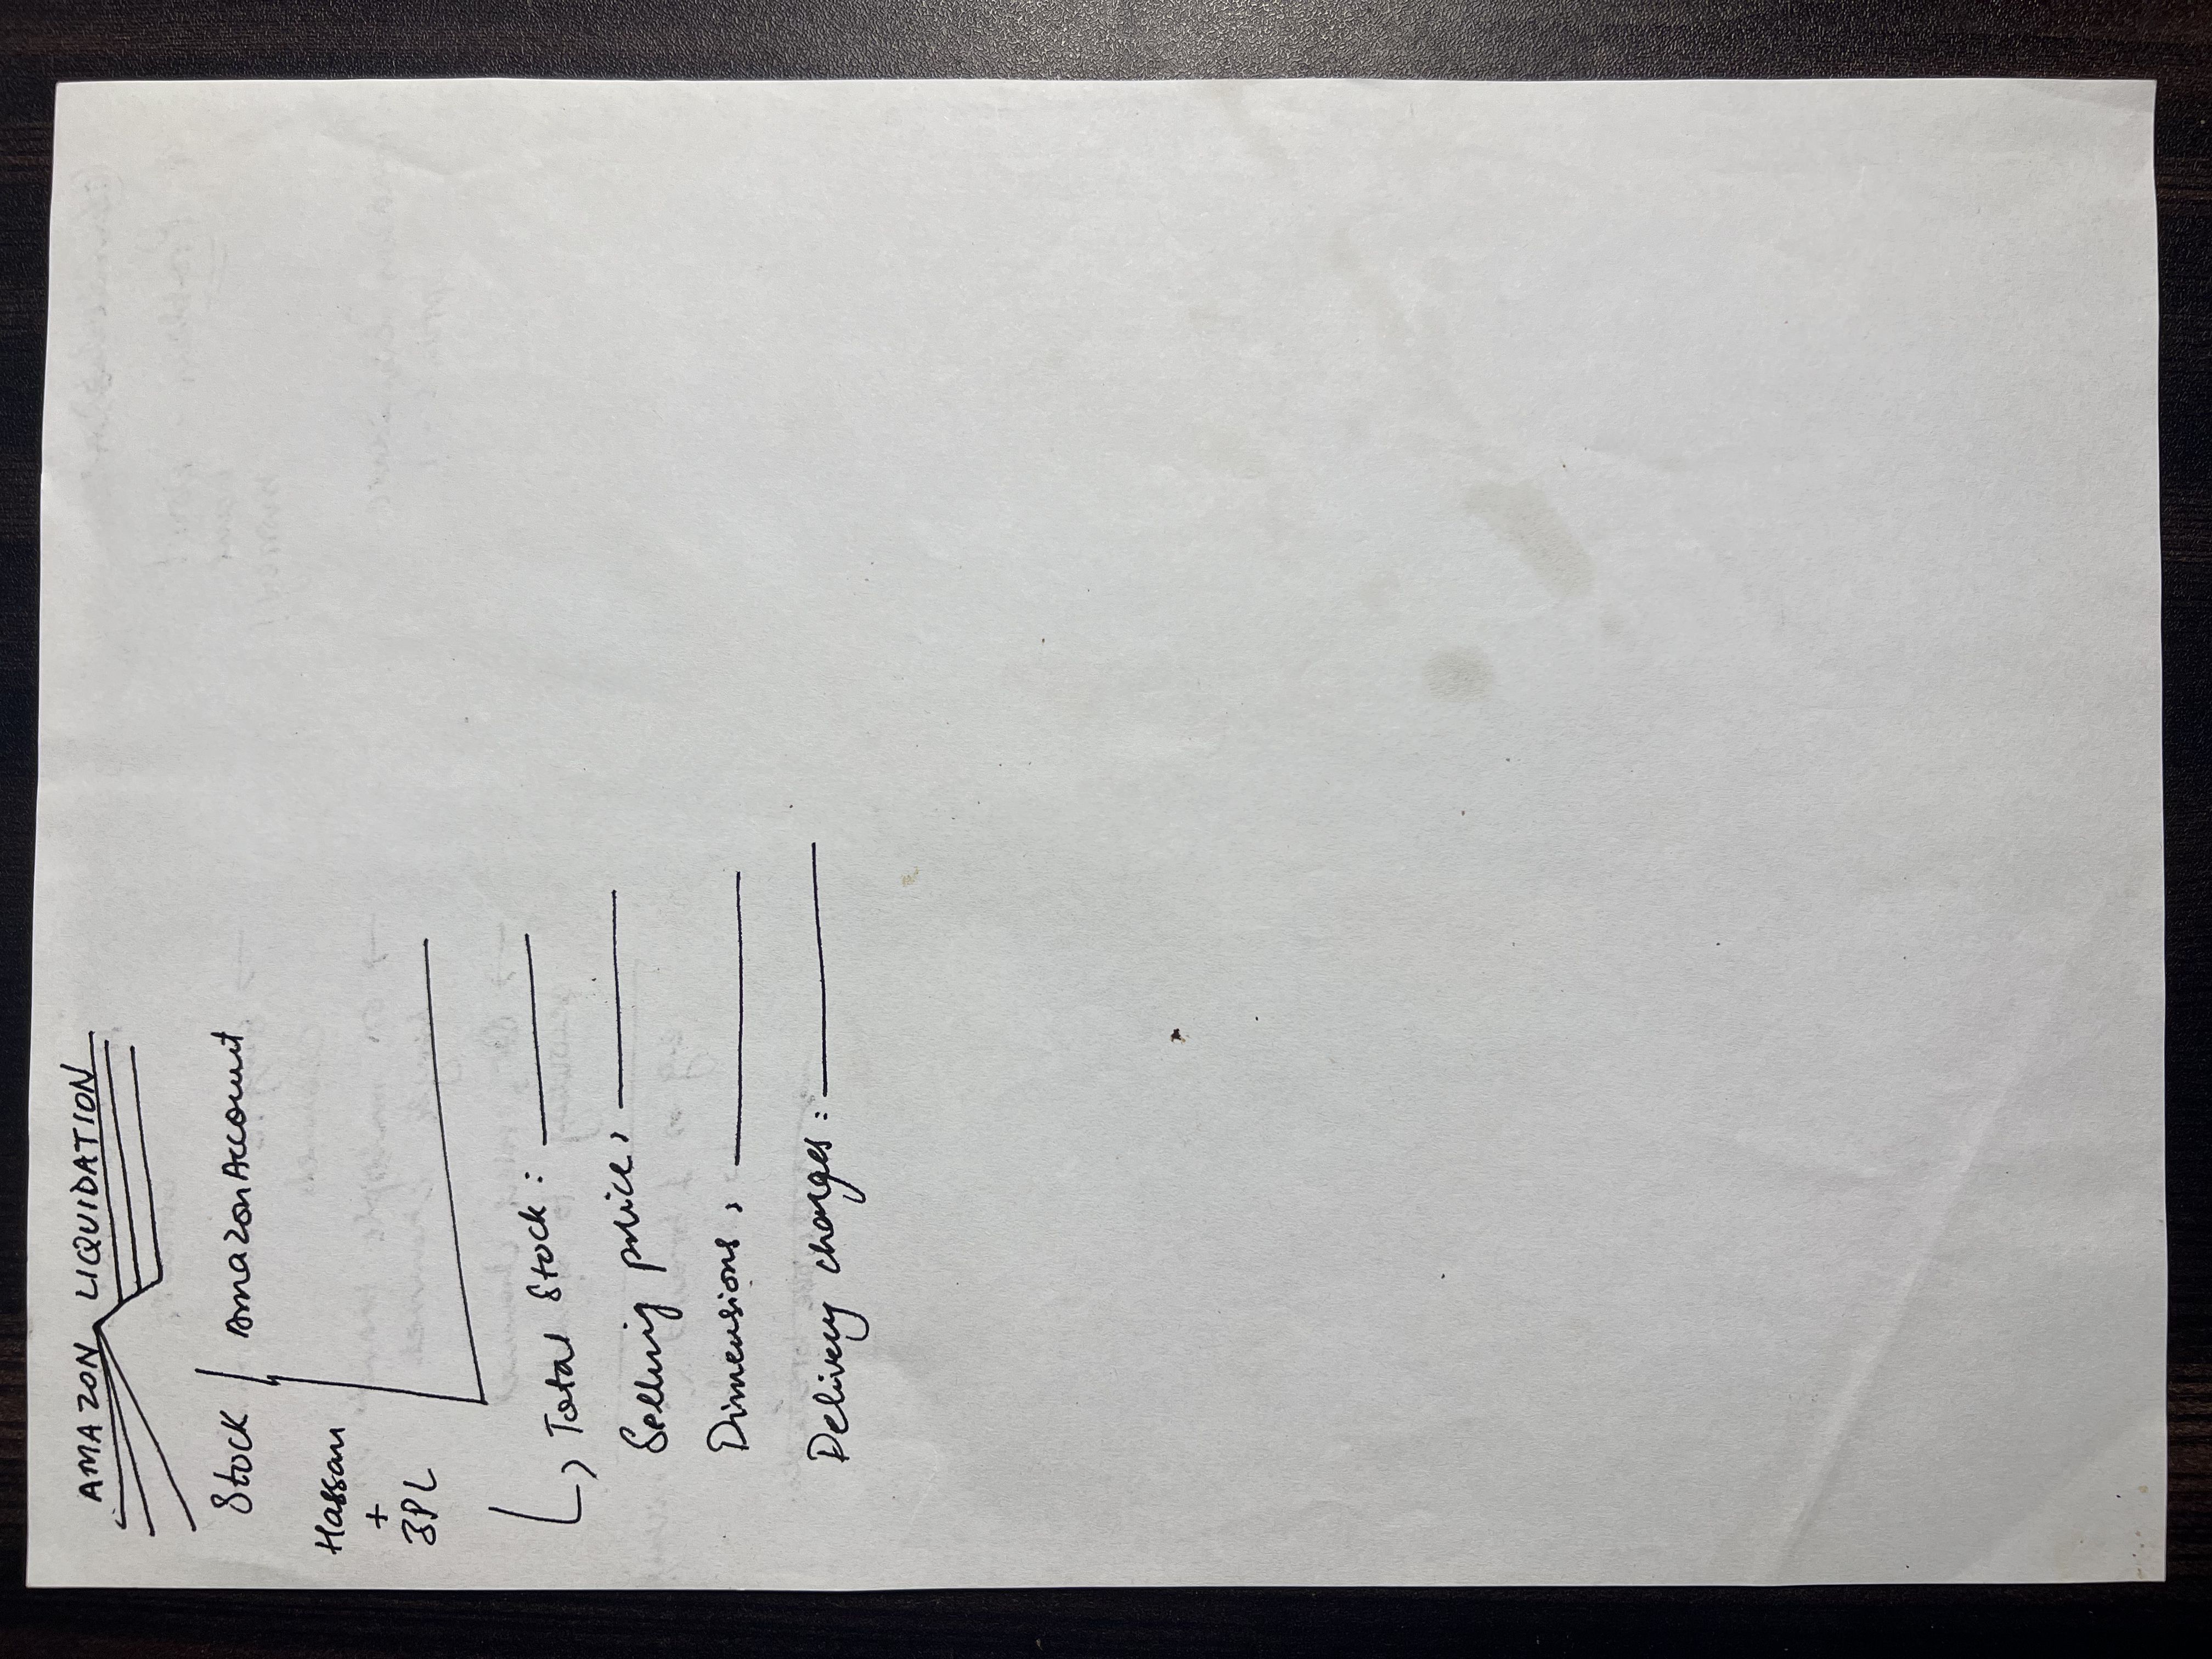 AMAZON LIQUIDATION
Stock Amazon Account
Hassan
+
3PL
Total Stock :
Selling price :
Dimensions :
Delivery charges :